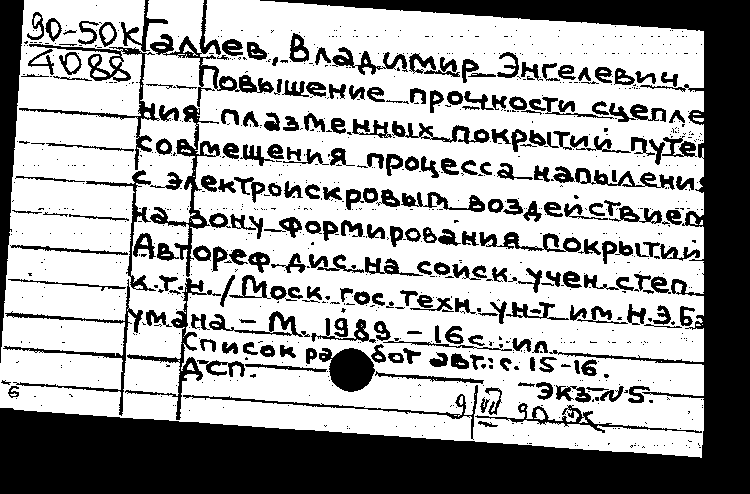 90-50к
4088
Галиев, Владимир Энгелевич.
Повышение прочности сцепле
ния плазменных покрытий путе
совмещения процесса напылени
с электроискровым воздействием
на зону формирования покрытий
Автореф. дис. на соиск. учен. степ.
к.т.н. / Моск. гос. техн. ун-т им. Н.Э.Ба
умана. – М., 1989. – 16с.: ил.
Список работ авт.: с. 15-16.
ДСП.
Экз. № 5.
9/VII 90
6